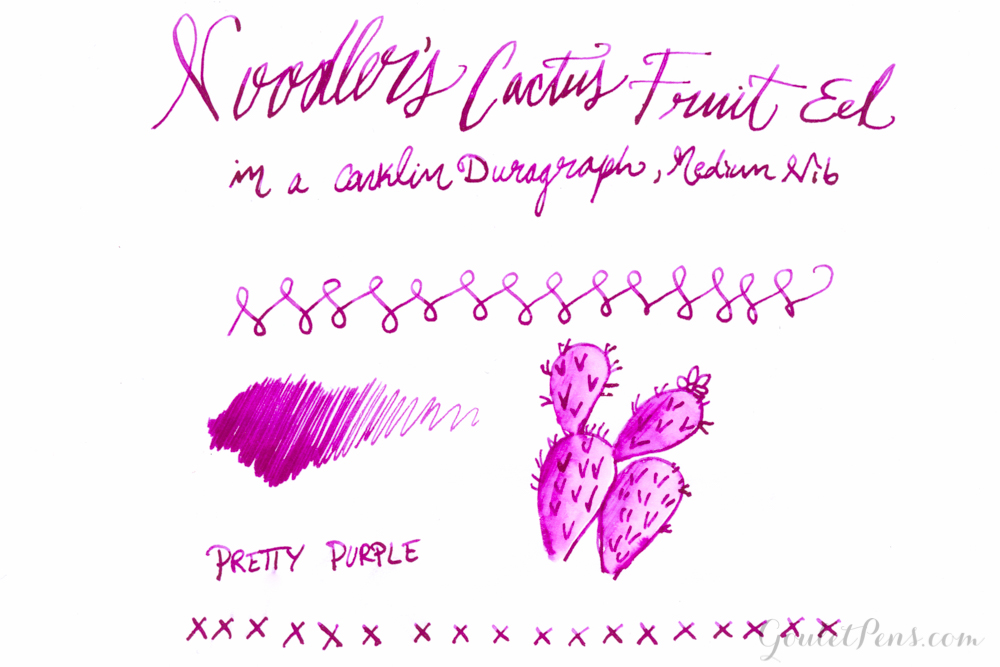 Noodler's Cactus Fruit Eel
in a Conklin Duragraph, Medium Nib
PRETTY PURPLE
x x x x x x x x x x x x x x x x x x
GouletPens.com